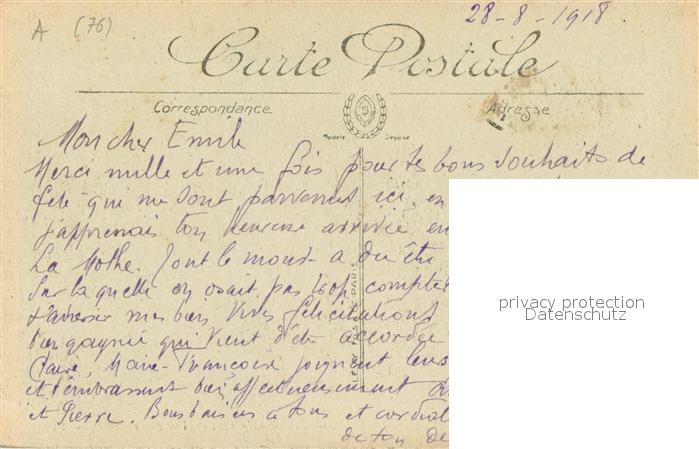 A (76)
28-8-1918.
Carte Postale
Correspondance
Adresse
Modèle Déposé
Mon cher Emile
Merci mille et une fois pour tes bons souhaits de
fête qui me sont parvenus ici, en
j'apprenais ton heureuse arrivée en
La Mothe. Tout le monde a du être
sur laquelle on osait pas trop compter
t'adresser mes bien vives félicitations
bien gagnée qui vient d'être accordée
Claire, Marie-Françoise joignent leurs
et t'embrassent bien affectueusement
et Pierre. Bons baisers à tous et cordial
de ton de
PARIS
privacy protection
Datenschutz